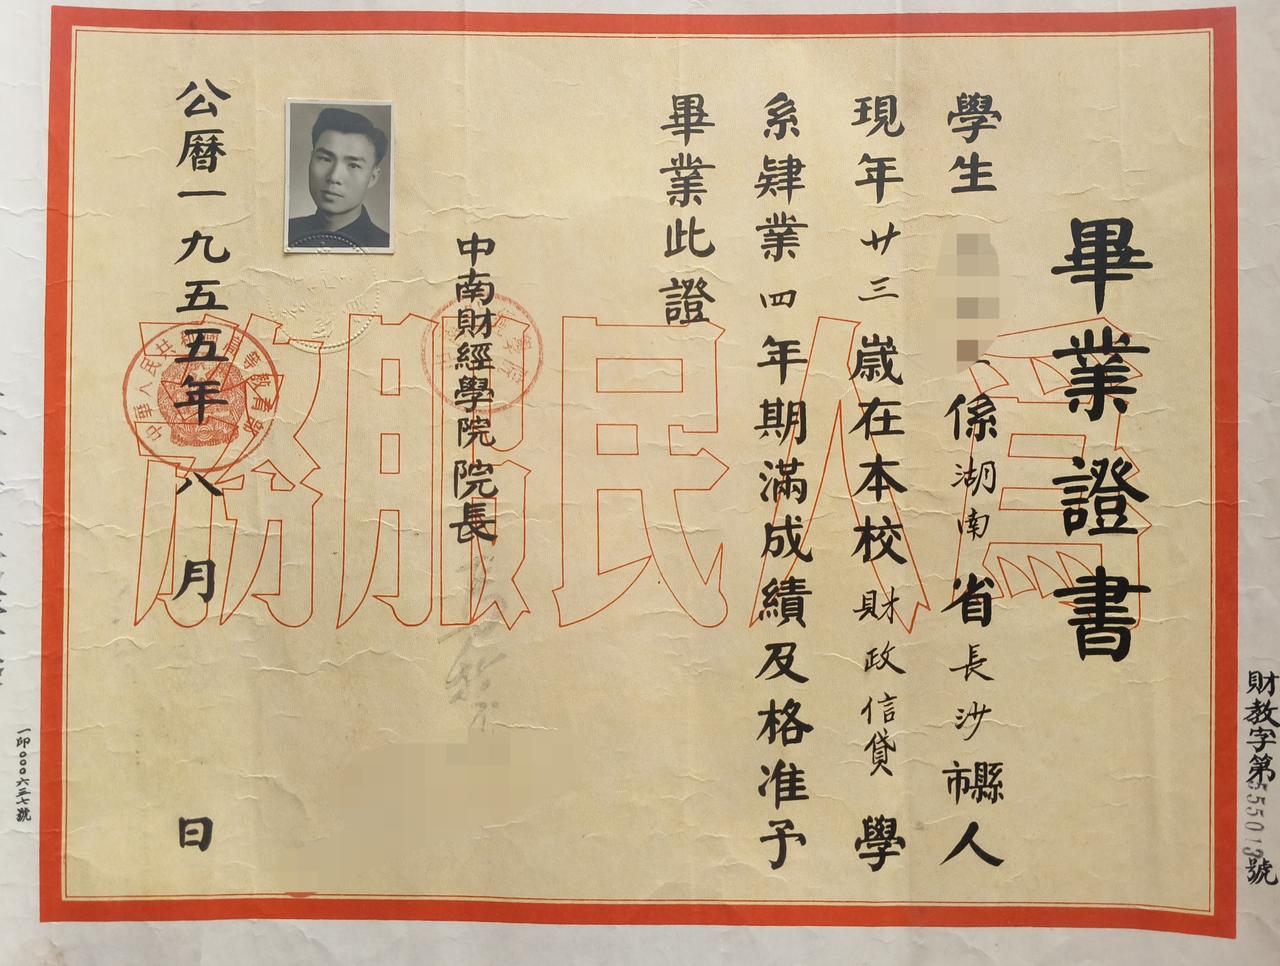 畢業證書
學生
係湖南省長沙市縣人
現年廿三歲在本校財政信貸學
系肄業四年期滿成績及格准予
畢業此證
中南財經學院院長
公曆一九五五年八月 日
為人民服務
中華人民共和國高等教育部
財教字第55013號
一印000六三七號